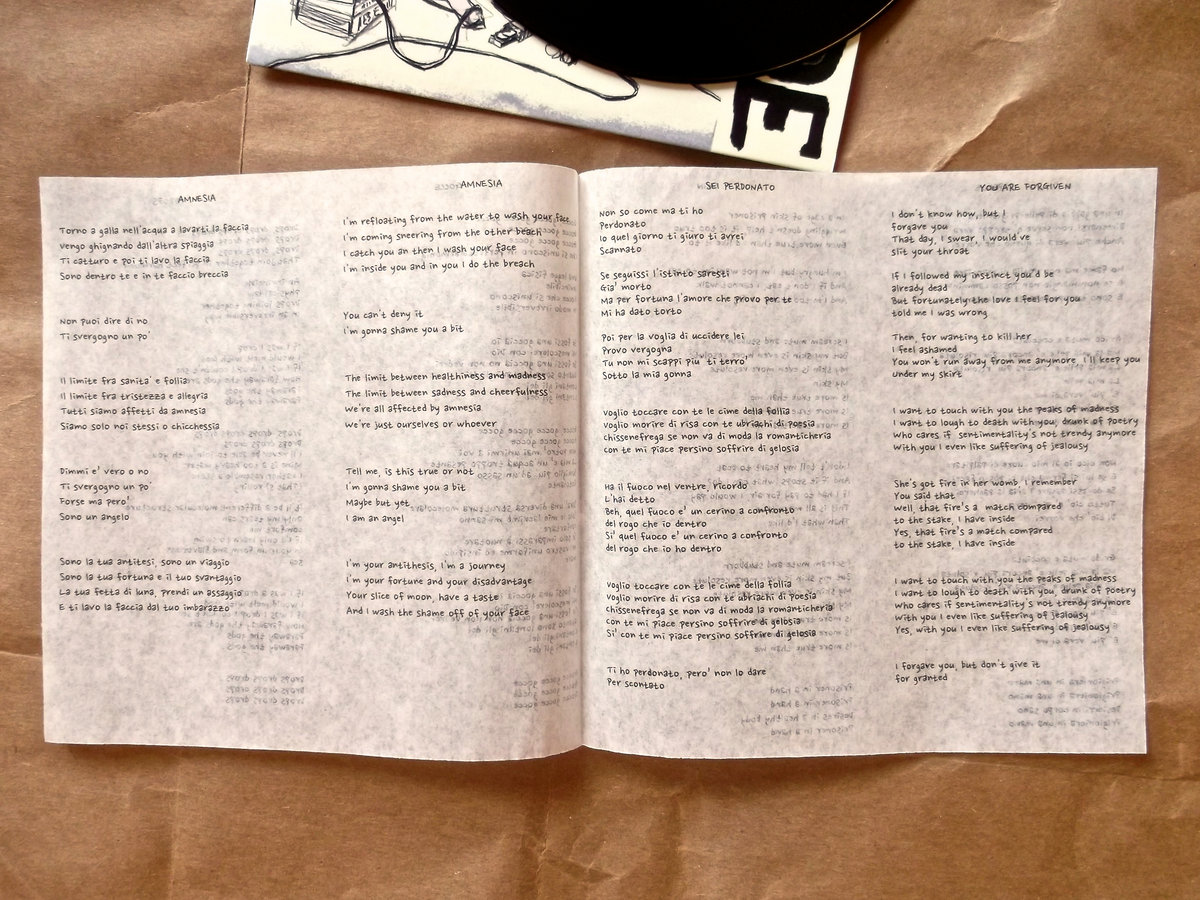 DE
AMNESIA
Torno a galla nell'acqua a lavarti la faccia
Vengo ghignando dall'altra spiaggia
Ti catturo e poi ti lavo la faccia
Sono dentro te e in te faccio breccia
Non puoi dire di no
Ti svergogno un po'
Il limite fra sanita' e follia
Il limite fra tristezza e allegria
Tutti siamo affetti da amnesia
Siamo solo noi stessi o chicchessia
Dimmi e' vero o no
Ti svergogno un po'
Forse ma pero'
Sono un angelo
Sono la tua antitesi, sono un viaggio
Sono la tua fortuna e il tuo svantaggio
La tua fetta di luna, prendi un assaggio
E ti lavo la faccia dal tuo imbarazzo
AMNESIA
I'm refloating from the water to wash your face
I'm coming sneering from the other beach
I catch you an then I wash your face
I'm inside you and in you I do the breach
You can't deny it
I'm gonna shame you a bit
The limit between healthiness and madness
The limit between sadness and cheerfulness
We're all affected by amnesia
We're just ourselves or whoever
Tell me, is this true or not
I'm gonna shame you a bit
Maybe but yet
I am an angel
I'm your antithesis, I'm a journey
I'm your fortune and your disadvantage
Your slice of moon, have a taste
And I wash the shame off of your face
SEI PERDONATO
Non so come ma ti ho
Perdonato
Io quel giorno ti giuro ti avrei
Scannato
Se seguissi l'istinto saresti
Gia' morto
Ma per fortuna l'amore che provo per te
Mi ha dato torto
Poi per la voglia di uccidere lei
Provo vergogna
Tu non mi scappi piu' ti terro'
Sotto la mia gonna
Voglio toccare con te le cime della follia
Voglio morire di risa con te ubriachi di poesia
Chissenefrega se non va di moda la romanticheria
Con te mi piace persino soffrire di gelosia
Ha il fuoco nel ventre, ricordo
L'hai detto
Beh, quel fuoco e' un cerino a confronto
del rogo che io dentro
Si' quel fuoco e' un cerino a confronto
del rogo che io ho dentro
Voglio toccare con te le cime della follia
Voglio morire di risa con te ubriachi di poesia
Chissenefrega se non va di moda la romanticheria
Con te mi piace persino soffrire di gelosia
Si' con te mi piace persino soffrire di gelosia
Ti ho perdonato, pero' non lo dare
Per scontato
YOU ARE FORGIVEN
I don't know how, but I
forgave you
That day, I swear, I would've
slit your throat
If I followed my instinct you'd be
already dead
But fortunately the love I feel for you
told me I was wrong
Then, for wanting to kill her
I feel ashamed
You won't run away from me anymore, I'll keep you
under my skirt
I want to touch with you the peaks of madness
I want to lough to death with you, drunk of poetry
Who cares if sentimentality's not trendy anymore
With you I even like suffering of jealousy
She's got fire in her womb, I remember
You said that
Well, that fire's a match compared
to the stake, I have inside
Yes, that fire's a match compared
to the stake, I have inside
I want to touch with you the peaks of madness
I want to lough to death with you, drunk of poetry
Who cares if sentimentality's not trendy anymore
With you I even like suffering of jealousy
Yes, with you I even like suffering of jealousy
I forgave you, but don't give it
for granted